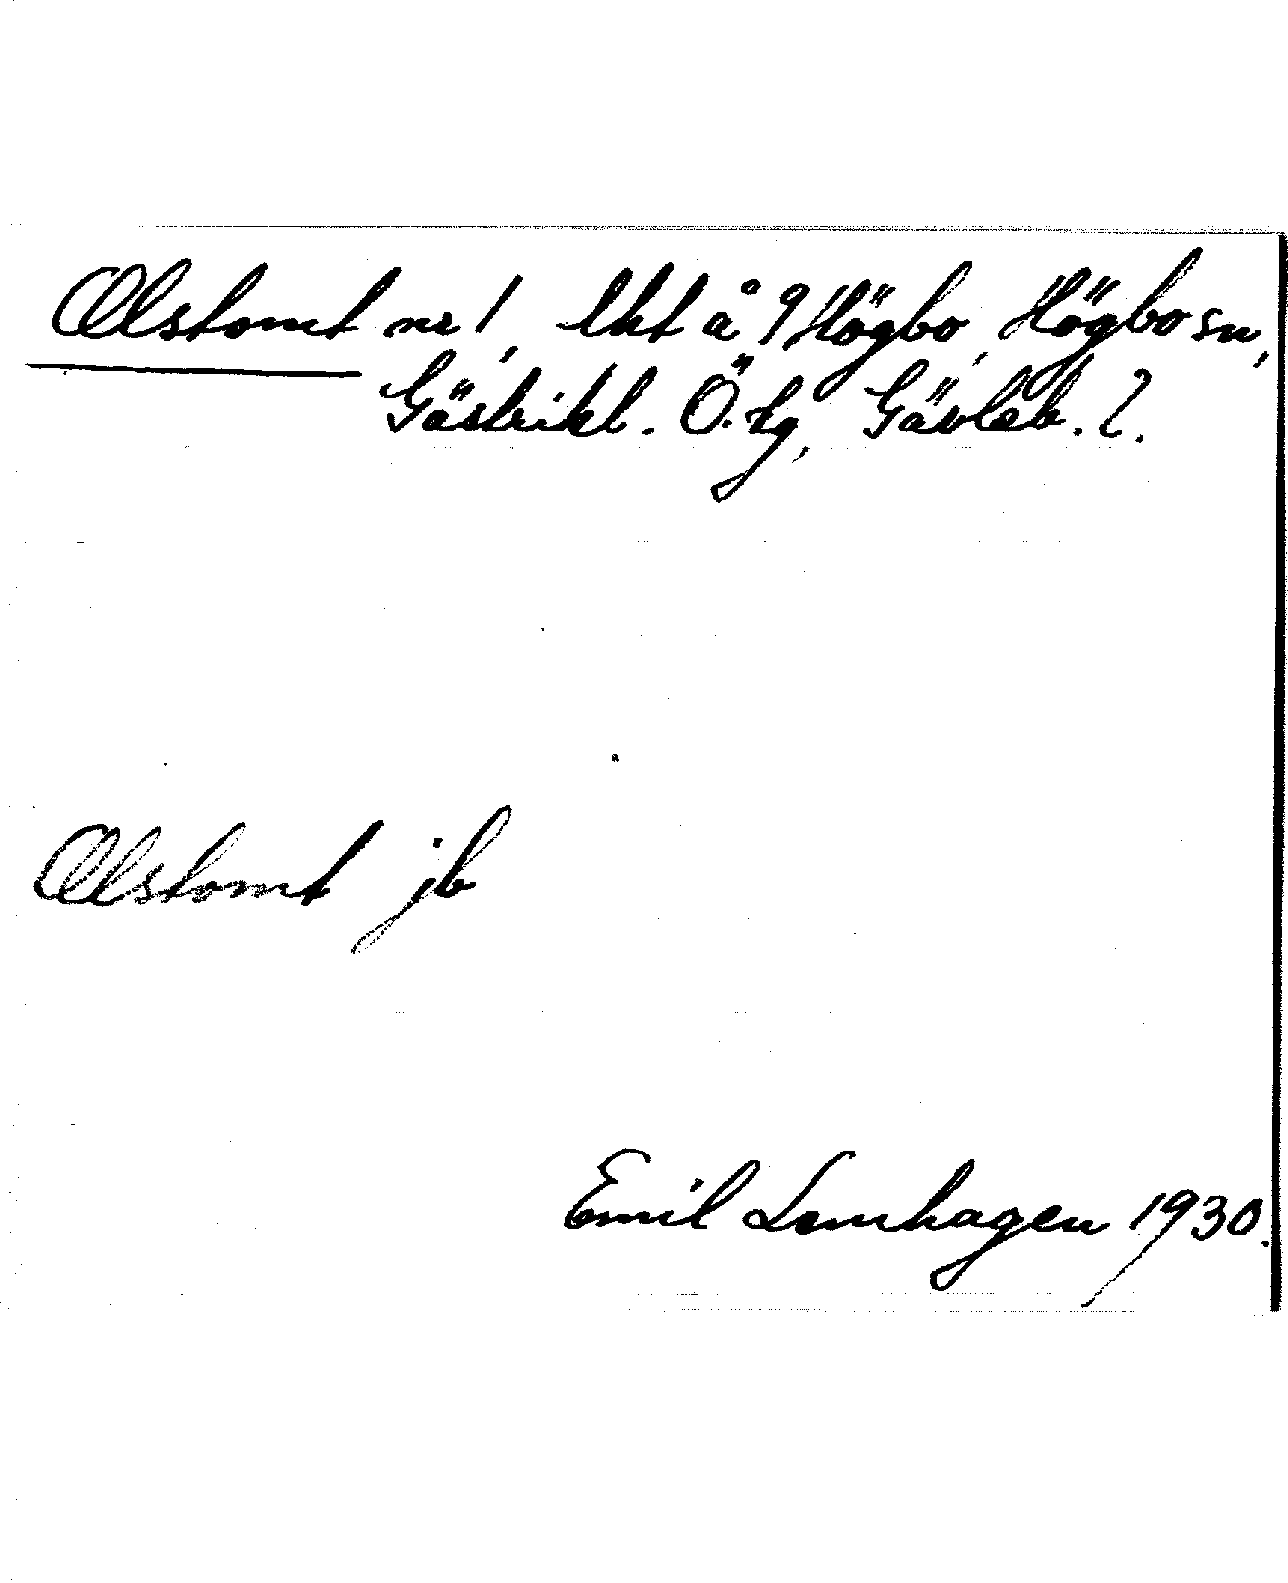 Olstomt nr 1, lht å 9 Högbo, Högbo sn,
Gästrikl. Ö. tg, Gävleb. l.
Olstomt jb
Emil Lemhagen 1930.